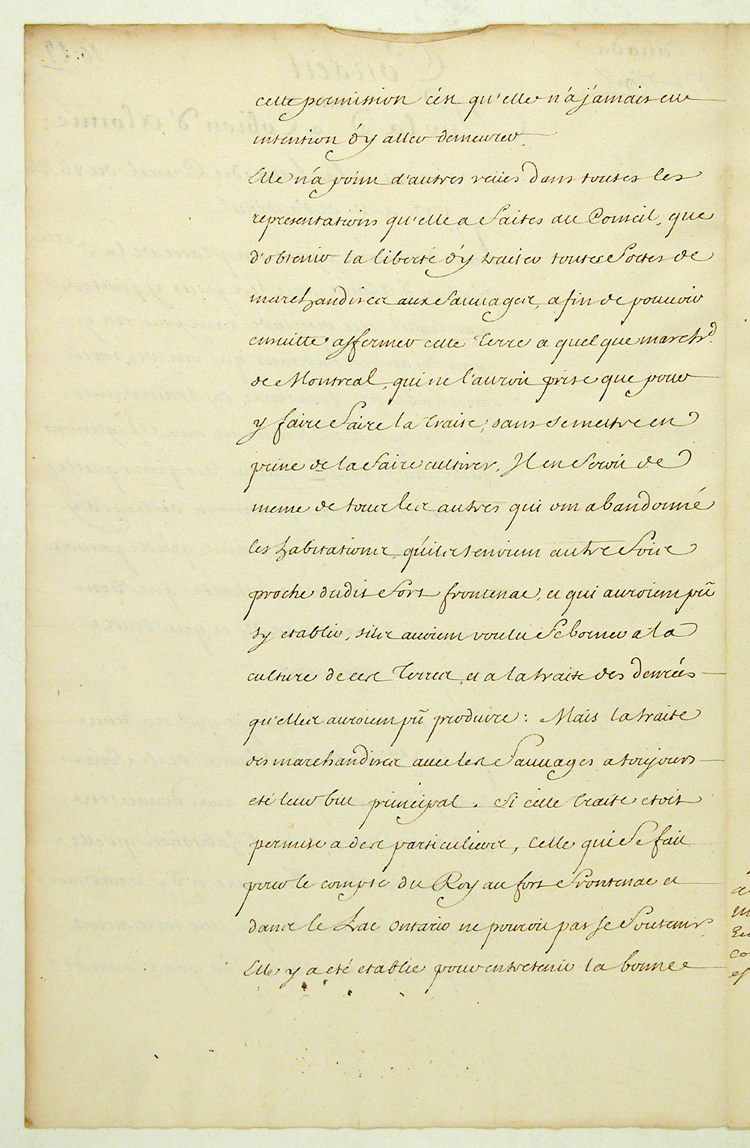 cette permission c'est qu'elle n'a jamais eue
intention d'y aller demeurer.
Elle n'a point d'autres veües dans toutes les
representations qu'elle a faites au Conseil, que
d'obtenir la liberté d'y traiter toutes sortes de
marchandises aux Sauvages, afin de pouvoir
ensuitte affermer cette Terre a quelque march.d
de Montreal, qui ne l'auroit prise que pour
y faire faire la traite, sans se mettre en
peine de la faire cultiver. Il en seroit de
meme de tous les autres qui ont abandonné
les habitations, qu'ils tenoient autre fois
proche dudit fort frontenac, et qui auroient pû
s'y etablir, s'ils avoient voulu se borner a la
culture de ces Terres, et a la traite des denrées
qu'elles auroient pû produire : Mais la traite
des marchandises avec les Sauvages a toujours
eté leur but principal. Si cette traite etoit
permise a des particuliers, Celle qui se fait
pour le compte du Roy au fort frontenac et
dans le Lac Ontario ne pouroit pas se soutenir.
Elle y a eté etablie pour entretenir la bonne